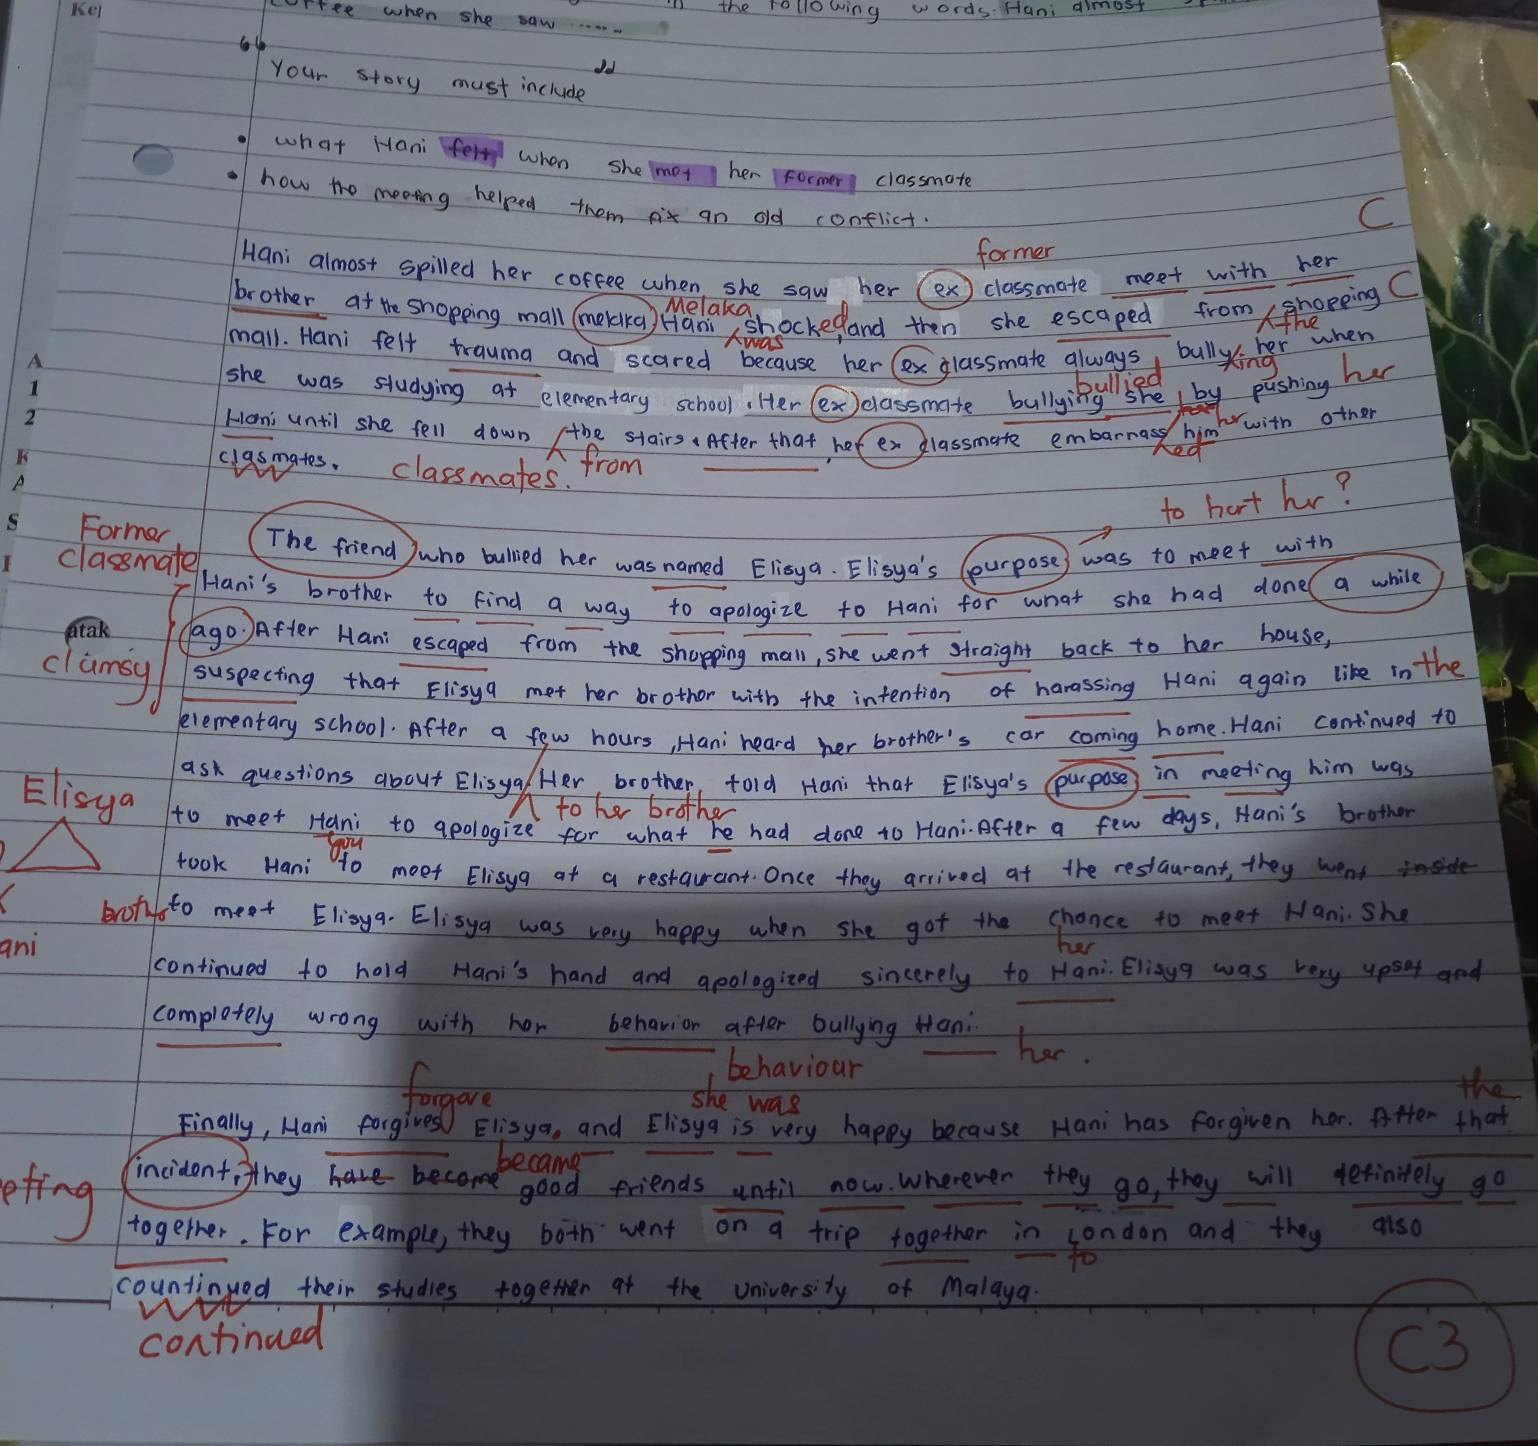 Kel
coffee when she saw ...... the following words. Hani almost
"Your story must include"
• what Hani felt when she met her former classmate
• how the meeting helped them fix an old conflict.
C
former
Hani almost spilled her coffee when she saw her ex classmate meet with her
brother at the shopping mall melaka Melaka Hani was shocked, and then she escaped from the shopping C
mall. Hani felt trauma and scared because her ex classmate always bullying her when
she was studying at elementary school. Her ex classmate bullying bullied she her by pushing her
Hani until she fell down from the stairs. After that, her ex classmate embarrassed him her with other
clasmates. classmates.
to hurt her?
Former classmate
The friend who bullied her was named Elisya. Elisya's purpose was to meet with
Hani's brother to find a way to apologize to Hani for what she had done a while
atak
clumsy
ago. After Hani escaped from the shopping mall, she went straight back to her house,
suspecting that Elisya met her brother with the intention of harassing Hani again like in the
elementary school. After a few hours, Hani heard her brother's car coming home. Hani continued to
ask questions about Elisya to her brother. Her brother told Hani that Elisya's purpose in meeting him was
Elisya
to meet Hani you to apologize for what he had done to Hani. After a few days, Hani's brother
took Hani to meet Elisya at a restaurant. Once they arrived at the restaurant, they went inside
brother
to meet Elisya. Elisya was very happy when she got the chance to meet Hani. She
ani
continued to hold Hani's hand and apologized sincerely to Hani her. Elisya was very upset and
completely wrong with her behavior after bullying Hani. her.
behaviour
forgave she was the
Finally, Hani forgives Elisya, and Elisya is very happy because Hani has forgiven her. After that
eting
incident, they have become became good friends until now. Wherever they go, they will definitely go
together. For example, they both went on a trip together in to London and they also
countinued their studies together at the University of Malaya.
continued
C3
A
1
2
K
A
S